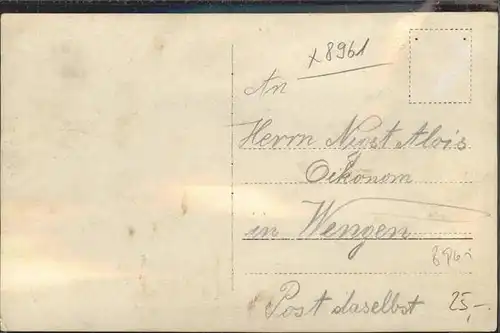 x8961
An
Herrn Nigst Alois
Oikonom
in Wengen
8961
Post daselbst
25,-